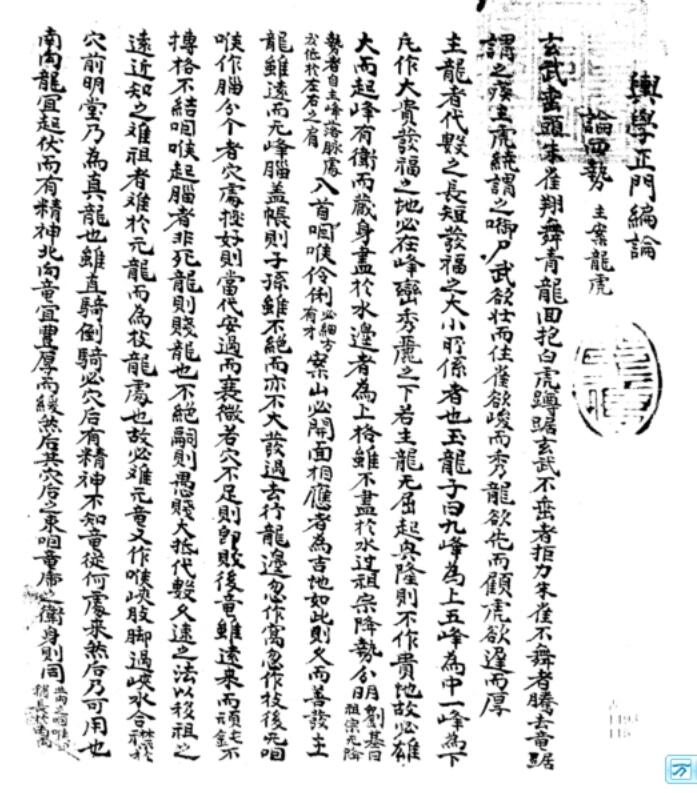 輿學正門編論
論四勢 主案龍虎
玄武垂頭朱雀翔舞青龍回抱白虎蹲踞玄武不垂者拒力朱雀不舞者騰去竜踞
謂之疾主虎繞謂之啣尸武欲壯而住雀欲峻而秀龍欲先而顧虎欲遲而厚
主龍者代數之長短發福之大小所係者也玉龍子曰九峰為上五峰為中一峰為下
凡作大貴發福之地必在峰巒秀麗之下若主龍无屈起與隆則不作貴地故必雄
大而起峰有衛而藏身盡於水邊者為上格雖不盡於水過祖宗降勢分明 劉基曰祖宗无降
勢者自主峰落脉處 或低於左右之肩 入首咽喉伶俐 必細方有才 案山必開面相應者為吉地如此則久而善發主
龍雖遠而无峰腦盖帳則子孫雖不絶而亦不大發過去行龍邊忽作窩忽作枝後无咽
喉作腦分个者穴處极好則當代安過而衰微若穴不足則卽敗後竜雖遠來而頑鈍不
摶格不結咽喉起腦者非死龍則賤龍也不絶嗣則愚賤大抵代數久速之法以移祖之
遠近知之难祖者难於元龍而為枝龍處也故必难元竜又作喉峽肢脚過峽水合襟於
穴前明堂乃為真龍也雖直騎倒騎必穴后有精神不知竜從何處来然后乃可用也
南向龍宜起伏而有精神北向竜宜豊厚而緩然后其穴后之束咽竜席之衛身則同